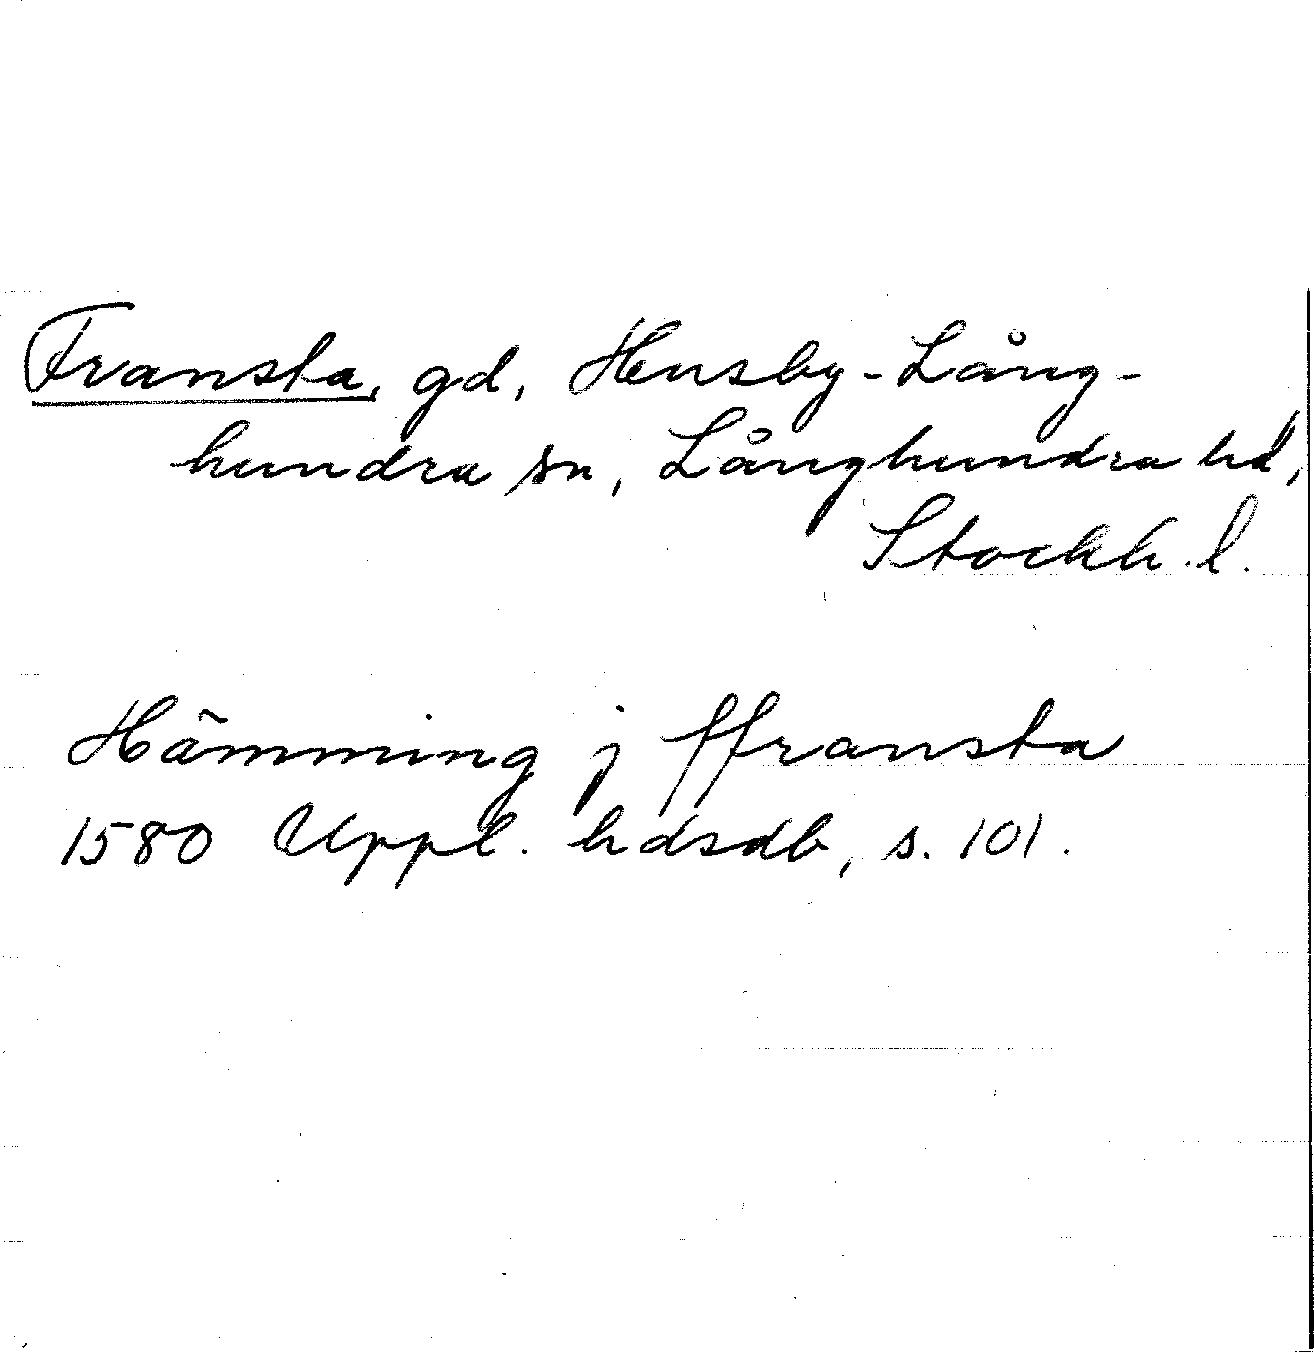 Fransta, gd, Husby-Lång-
hundra sn, Långhundra hd,
Stockh. l.
Hämming j ffransta
1580 Uppl. hdsdb, s. 101.